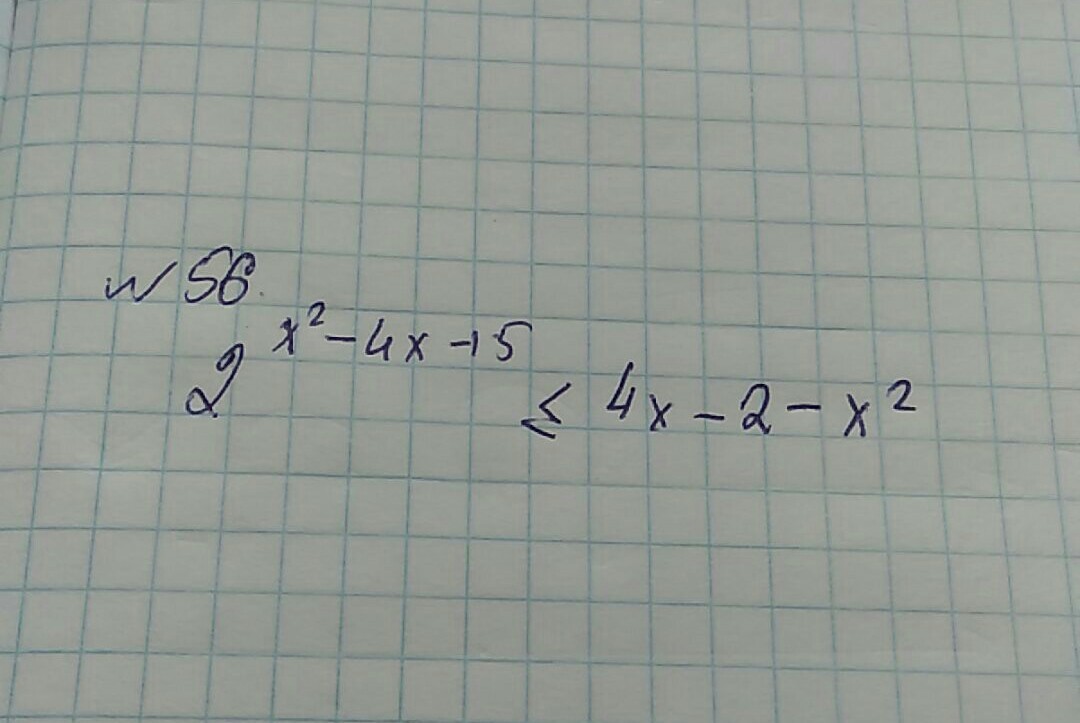 № 56.
2^(x²-4x+5) ≤ 4x-2-x²